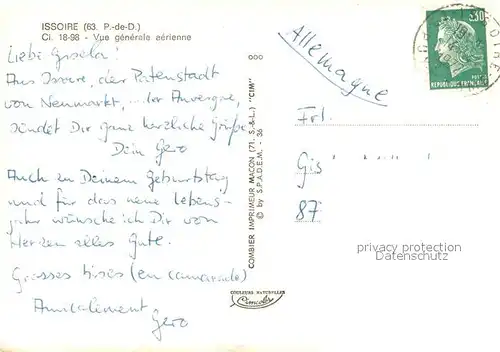 ISSOIRE (63. P.-de-D.)
Ci. 18-98 - Vue générale aérienne
Liebe Gisela!
Aus Issoire, der Patenstadt
von Neumarkt, ... der Auvergne,
sendet Dir ganz herzliche Grüße
Dein Gero
Auch zu Deinem Geburtstag
und für das neue Lebens-
jahr wünsche ich Dir von
Herzen alles Gute.
Grosses bises (en camarade)
Amicalement
Gero
COMBIER IMPRIMEUR MACON (71. S.-&-L.) "CIM"
© by S.P.A.D.E.M. - 36
COULEURS NATURELLES
Cimcolor
Allemagne
0,30
REPUBLIQUE FRANÇAISE
Frl.
Gis
87
privacy protection
Datenschutz